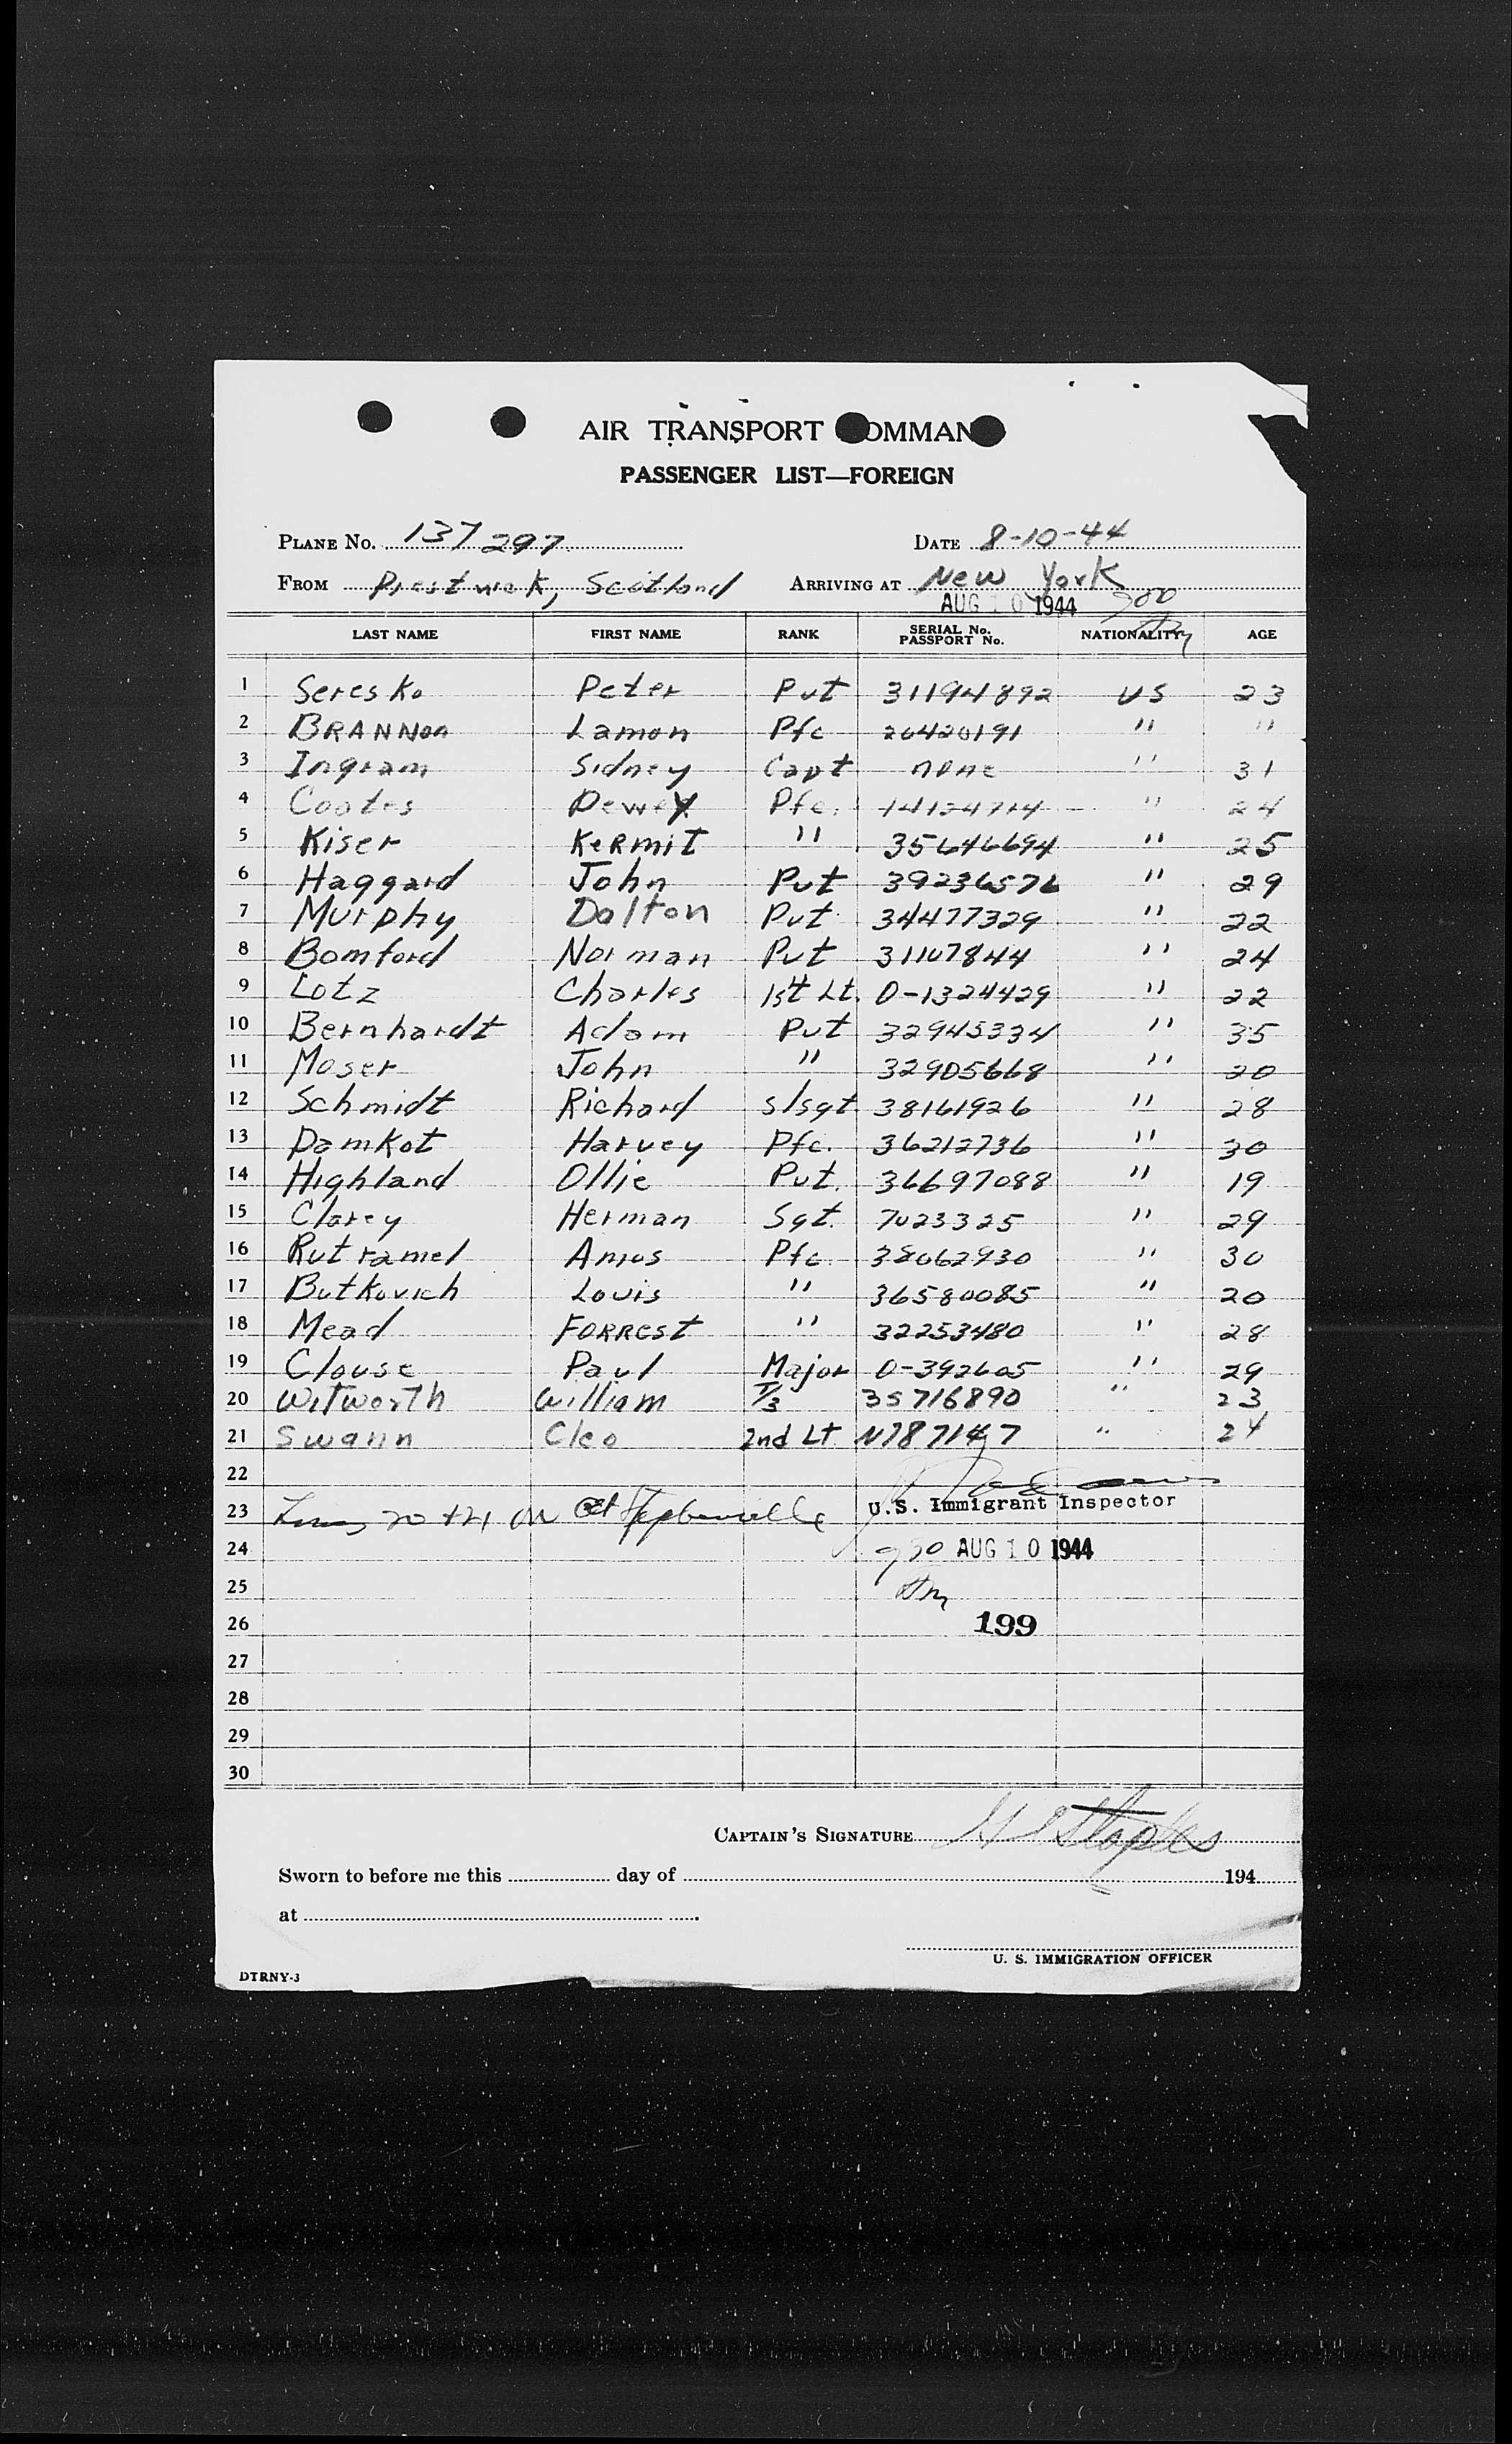 AIR TRANSPORT COMMAND
PASSENGER LIST—FOREIGN
PLANE No. 137297 DATE 8-10-44
FROM Prestwick, Scotland ARRIVING AT New York
AUG 10 1944 900
LAST NAME FIRST NAME RANK SERIAL No. PASSPORT No. NATIONALITY AGE
1 Seresko Peter Pvt 31194892 US 23
2 BRANNon Lamon Pfc 20420191 " "
3 Ingram Sidney Capt none " 31
4 Coates Dewey Pfc. 14124714 " 24
5 Kiser KeRmit " 35646694 " 25
6 Haggard John Pvt 39236576 " 29
7 Murphy Dalton Pvt 34477329 " 22
8 Bomford Norman Pvt 31107844 " 24
9 Lotz Charles 1st Lt. O-1324429 " 22
10 Bernhardt Adam Pvt 32945334 " 35
11 Moser John " 32905668 " 20
12 Schmidt Richard s/sgt 38161926 " 28
13 Damkot Harvey Pfc. 36212736 " 30
14 Highland Ollie Pvt. 36697088 " 19
15 Clarey Herman Sgt. 7023325 " 29
16 Rutramel Amos Pfc. 38062930 " 30
17 Butkovich Louis " 36580085 " 20
18 Mead FORRest " 32253480 " 28
19 Clouse Paul Major O-392605 " 29
20 Witworth William T/3 35716890 " 23
21 Swann Cleo 2nd Lt N787147 " 24
22
U.S. Immigrant Inspector
23 Lines 20 + 21 on at Stephenville
24 930 AUG 10 1944
25
26 199
27
28
29
30
CAPTAIN'S SIGNATURE Staples
Sworn to before me this day of 194
at
U. S. IMMIGRATION OFFICER
DTRNY-3